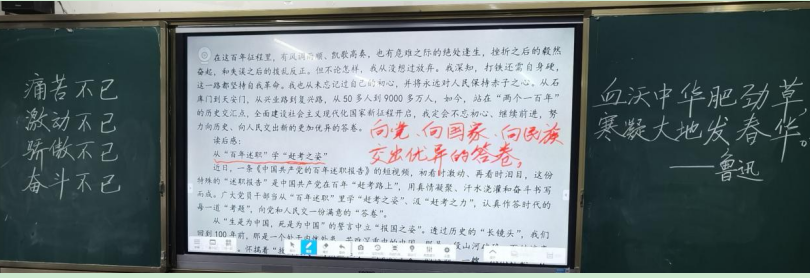 痛苦不已
激动不已
骄傲不已
奋斗不已
在这百年征程里，有风调雨顺、凯歌高奏，也有危难之际的绝处逢生，挫折之后的毅然
奋起，和失误之后的拨乱反正。但不论怎样，我从没想过放弃。我深知，打铁还需自身硬，
这一路都坚持自我革命。我也从未忘记过自己的初心，并将永远对人民保持赤子之心。从石
库门到天安门，从兴业路到复兴路，从50多人到9000多万人，如今，站在“两个一百年”
的历史交汇点，全面建设社会主义现代化国家新征程开启，我定会不忘初心、继续前进，努
力向历史、向人民交出新的更加优异的答卷。
向党、向国家、向民族
交出优异的答卷。
读后感：
从“百年述职”学“赶考之姿”
近日，一条《中国共产党的百年述职报告》的短视频，初看时激动、再看时泪目，这份
特殊的“述职报告”是中国共产党在百年“赶考路上”，用真情凝聚、汗水浇灌和奋斗书写
而成。广大党员干部当从“百年述职”里学“赶考之姿”、汲“赶考之力”，认真作答时代的
每一道“考题”，向党和人民交一份满意的“答卷”。
从“生是为中国，死是为中国”的誓言中立“报国之姿”。透过历史的“长镜头”，我们
回到100年前，那是一个
血沃中华肥劲草
寒凝大地发春华。
——鲁迅